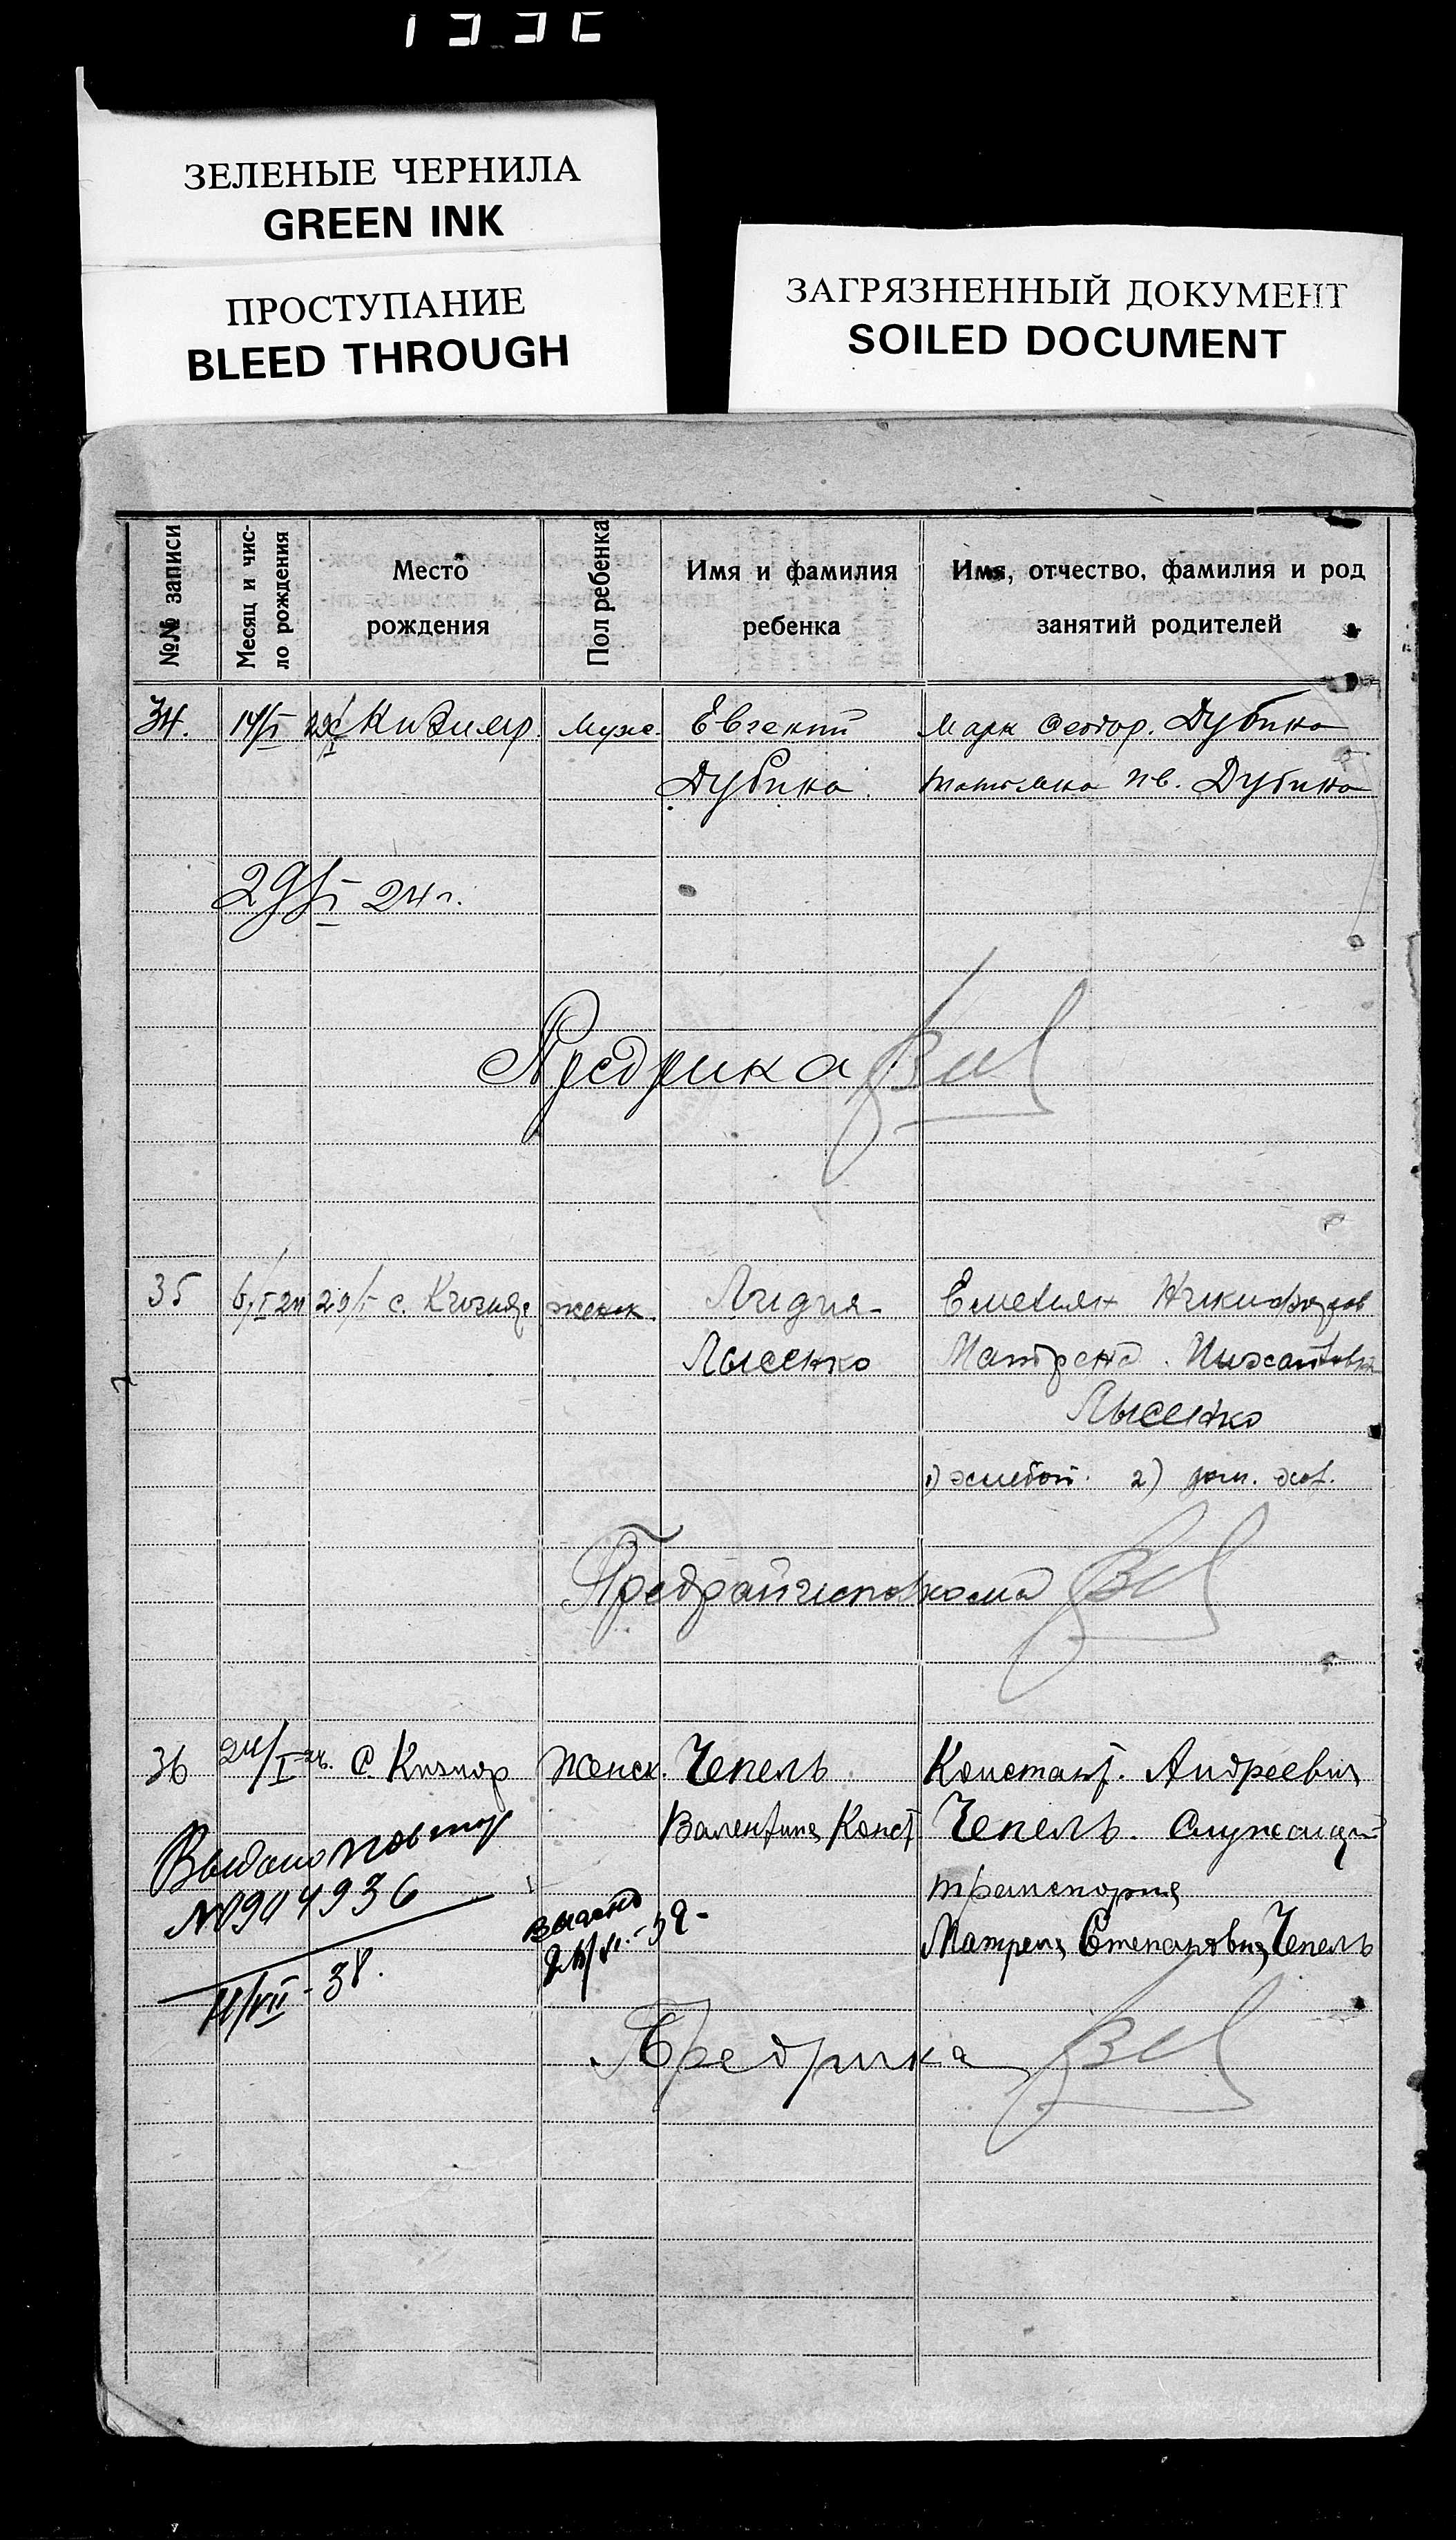 ЗЕЛЕНЫЕ ЧЕРНИЛА
GREEN INK
ПРОСТУПАНИЕ
BLEED THROUGH
ЗАГРЯЗНЕННЫЙ ДОКУМЕНТ
SOILED DOCUMENT
№№ записи
Месяц и чис-
ло рождения
Место
рождения
Пол ребенка
Имя и фамилия
ребенка
Имя, отчество, фамилия и род
занятий родителей
34. 14/I Муж. Евгений Марк Федор. Дубина
Дубина Татьяна Ив. Дубина
29/I 24 г.
Предрика
35 6/I 24 29/I с. женск. Лидия Емельян Никифоров
Лысенко Матрена
Лысенко
1) 2) дом. хоз.
Предрайисполкома
36 24/I с. Кизляр Женск. Чепель Констант. Андреевич
Валентина Конст Чепель. Служащий
транспорта
Матрена Степановна Чепель
Выдано повтор
№ 0904936
11/VII - 38.
Выдано
Предрика